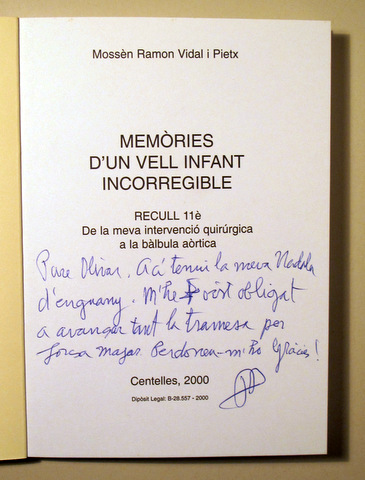 Mossèn Ramon Vidal i Pietx
MEMÒRIES
D'UN VELL INFANT
INCORREGIBLE
RECULL 11è
De la meva intervenció quirúrgica
a la bàlbula aòrtica
Pare Olivar. Ací teniu la meva Nadala
d'enguany. M'he vist obligat
a avançar tant la tramesa per
força major. Perdoneu-m'ho. Gràcies!
Centelles, 2000
Dipòsit Legal: B-28.557 - 2000